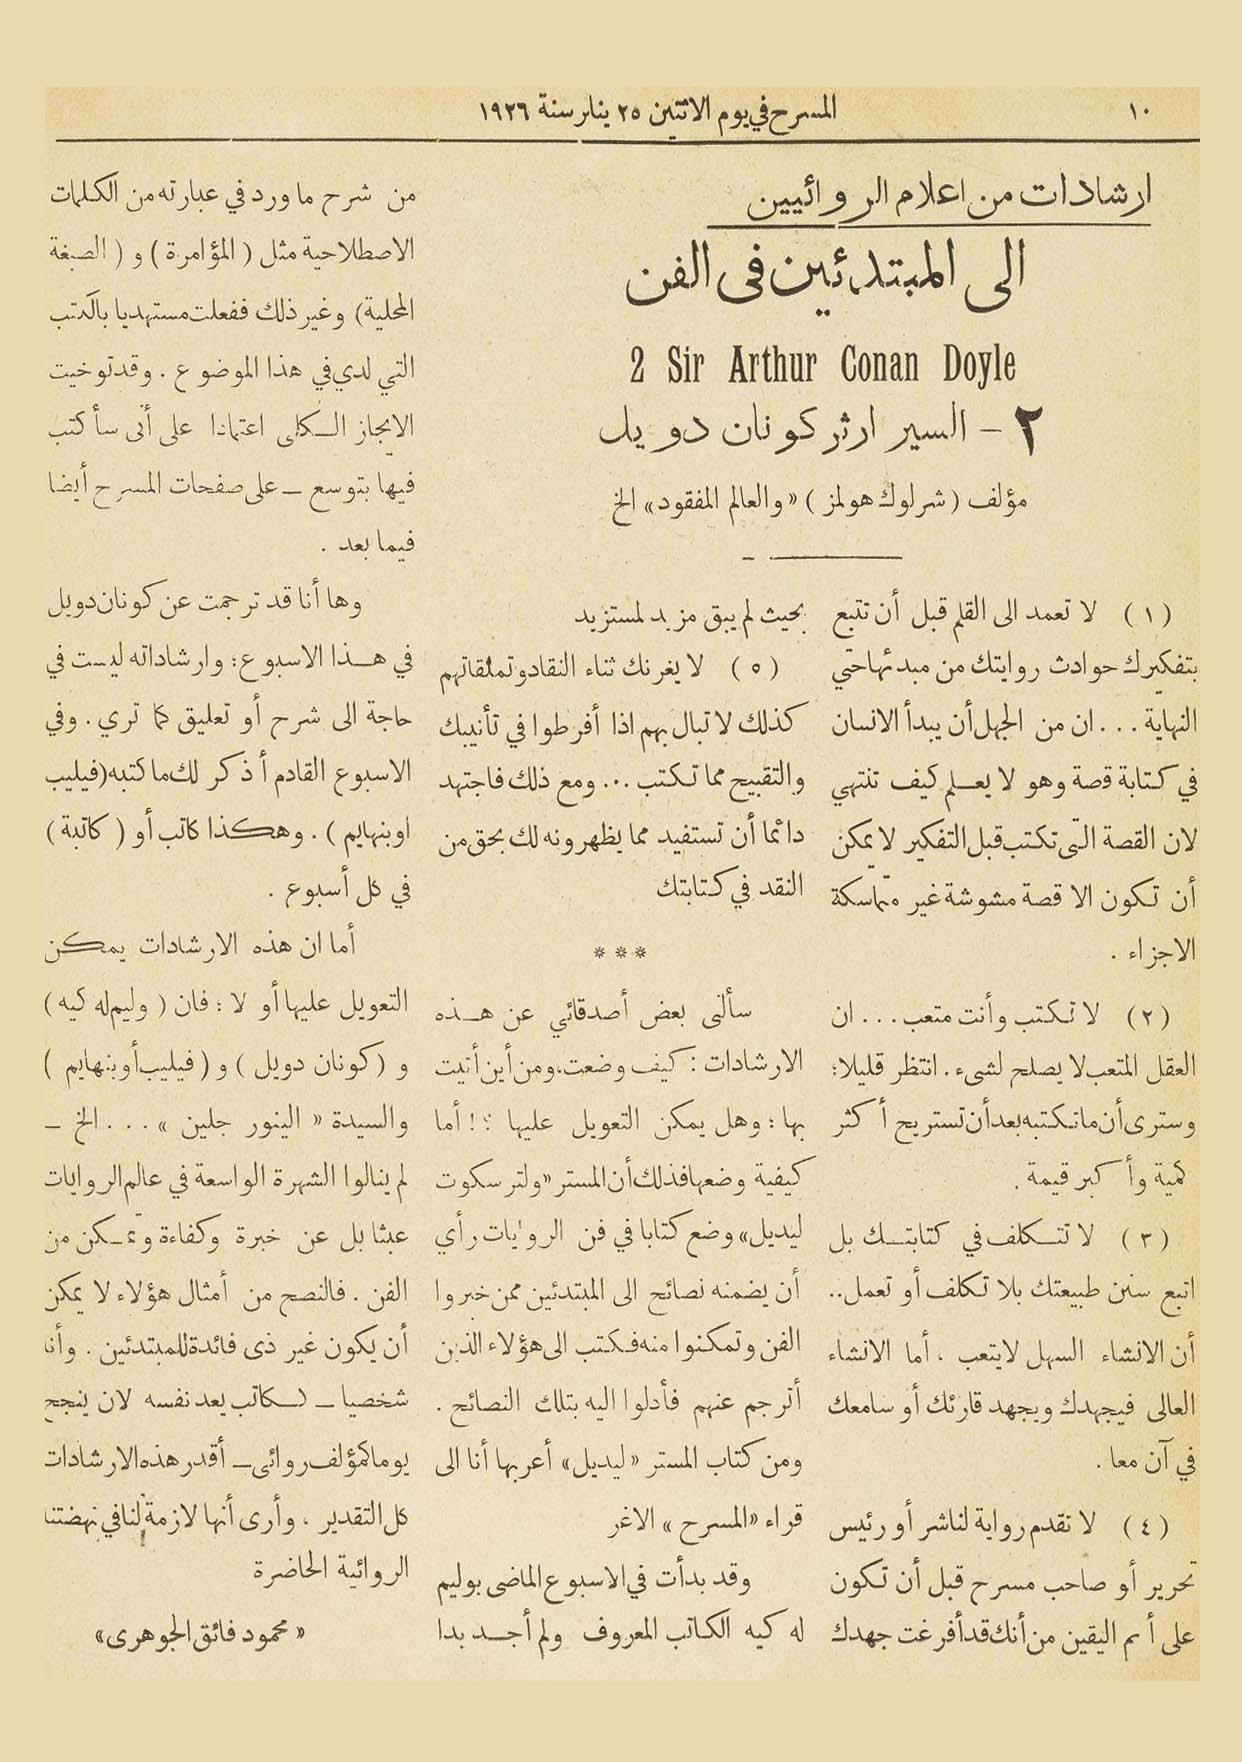 ١٠
المسرح في يوم الاثنين ٢٥ يناير سنة ١٩٢٦
ارشادات من اعلام الروائيين
الى المبتدئين فى الفن
2 Sir Arthur Conan Doyle
٢ – السير ارثر كونان دويل
مؤلف ( شرلوك هولمز ) «والعالم المفقود» الخ
( ١ ) لا تعمد الى القلم قبل أن تتبع
بتفكيرك حوادث روايتك من مبدئها حتي
النهاية . . . ان من الجهل أن يبدأ الانسان
في كتابة قصة وهو لا يعلم كيف تنتهي
لان القصة التى تكتب قبل التفكير لا يمكن
أن تكون الا قصة مشوشة غير متماسكة
الاجزاء .
( ٢ ) لا تكتب وأنت متعب . . . ان
العقل المتعب لا يصلح لشىء . انتظر قليلا؛
وسترى أن ما تكتبه بعد أن تستريح أكثر
كمية وأكبر قيمة .
( ٣ ) لا تتكلف في كتابتك بل
اتبع سنن طبيعتك بلا تكلف أو تعمل..
أن الانشاء السهل لا يتعب ، أما الانشاء
العالى فيجهدك ويجهد قارئك أو سامعك
في آن معا .
( ٤ ) لا تقدم رواية لناشر أو رئيس
تحرير أو صاحب مسرح قبل أن تكون
على أتم اليقين من أنك قد أفرغت جهدك
بحيث لم يبق مزيد لمستزيد
( ٥ ) لا يغرنك ثناء النقاد وتملقاتهم
كذلك لا تبال بهم اذا أفرطوا في تأنيبك
والتقبيح مما تكتب ... ومع ذلك فاجتهد
دائما أن تستفيد مما يظهرونه لك بحق من
النقد في كتابتك
* * *
سألنى بعض أصدقائي عن هذه
الارشادات : كيف وضعت، ومن أين أتيت
بها ؛ وهل يمكن التعويل عليها ؟! أما
كيفية وضعها فذلك أن المستر «ولتر سكوت
ليديل» وضع كتابا في فن الروايات رأي
أن يضمنه نصائح الى المبتدئين ممن خبروا
الفن وتمكنوا منه فكتب الى هؤلاء الذين
أترجم عنهم فأدلوا اليه بتلك النصائح .
ومن كتاب المستر «ليديل» أعربها أنا الى
قراء «المسرح» الاغر
وقد بدأت في الاسبوع الماضى بوليم
له كيه الكاتب المعروف ولم أجد بدا
من شرح ما ورد في عبارته من الكلمات
الاصطلاحية مثل ( المؤامرة ) و ( الصبغة
المحلية) وغير ذلك ففعلت مستهديا بالكتب
التي لدي في هذا الموضوع . وقد توخيت
الايجاز الكلى اعتمادا على أنى سأكتب
فيها بتوسع – على صفحات المسرح أيضا
فيما بعد .
وها أنا قد ترجمت عن كونان دويل
في هذا الاسبوع ؛ وارشاداته ليست في
حاجة الى شرح أو تعليق كما تري . وفي
الاسبوع القادم أذكر لك ما كتبه (فيليب
اوبنهايم ) . وهكذا كاتب أو ( كاتبة )
في كل أسبوع .
أما ان هذه الارشادات يمكن
التعويل عليها أو لا ؛ فان ( وليم له كيه )
و ( كونان دويل ) و ( فيليب أوبنهايم )
والسيدة « الينور جلين » . . . الخ –
لم ينالوا الشهرة الواسعة في عالم الروايات
عبثا بل عن خبرة وكفاءة وتمكن من
الفن . فالنصح من أمثال هؤلاء لا يمكن
أن يكون غير ذى فائدة للمبتدئين . وأنا
شخصيا – لكاتب يعد نفسه لان ينجح
يوما كمؤلف روائى – أقدر هذه الارشادات
كل التقدير ، وأرى أنها لازمة لنا في نهضتنا
الروائية الحاضرة
« محمود فائق الجوهرى»